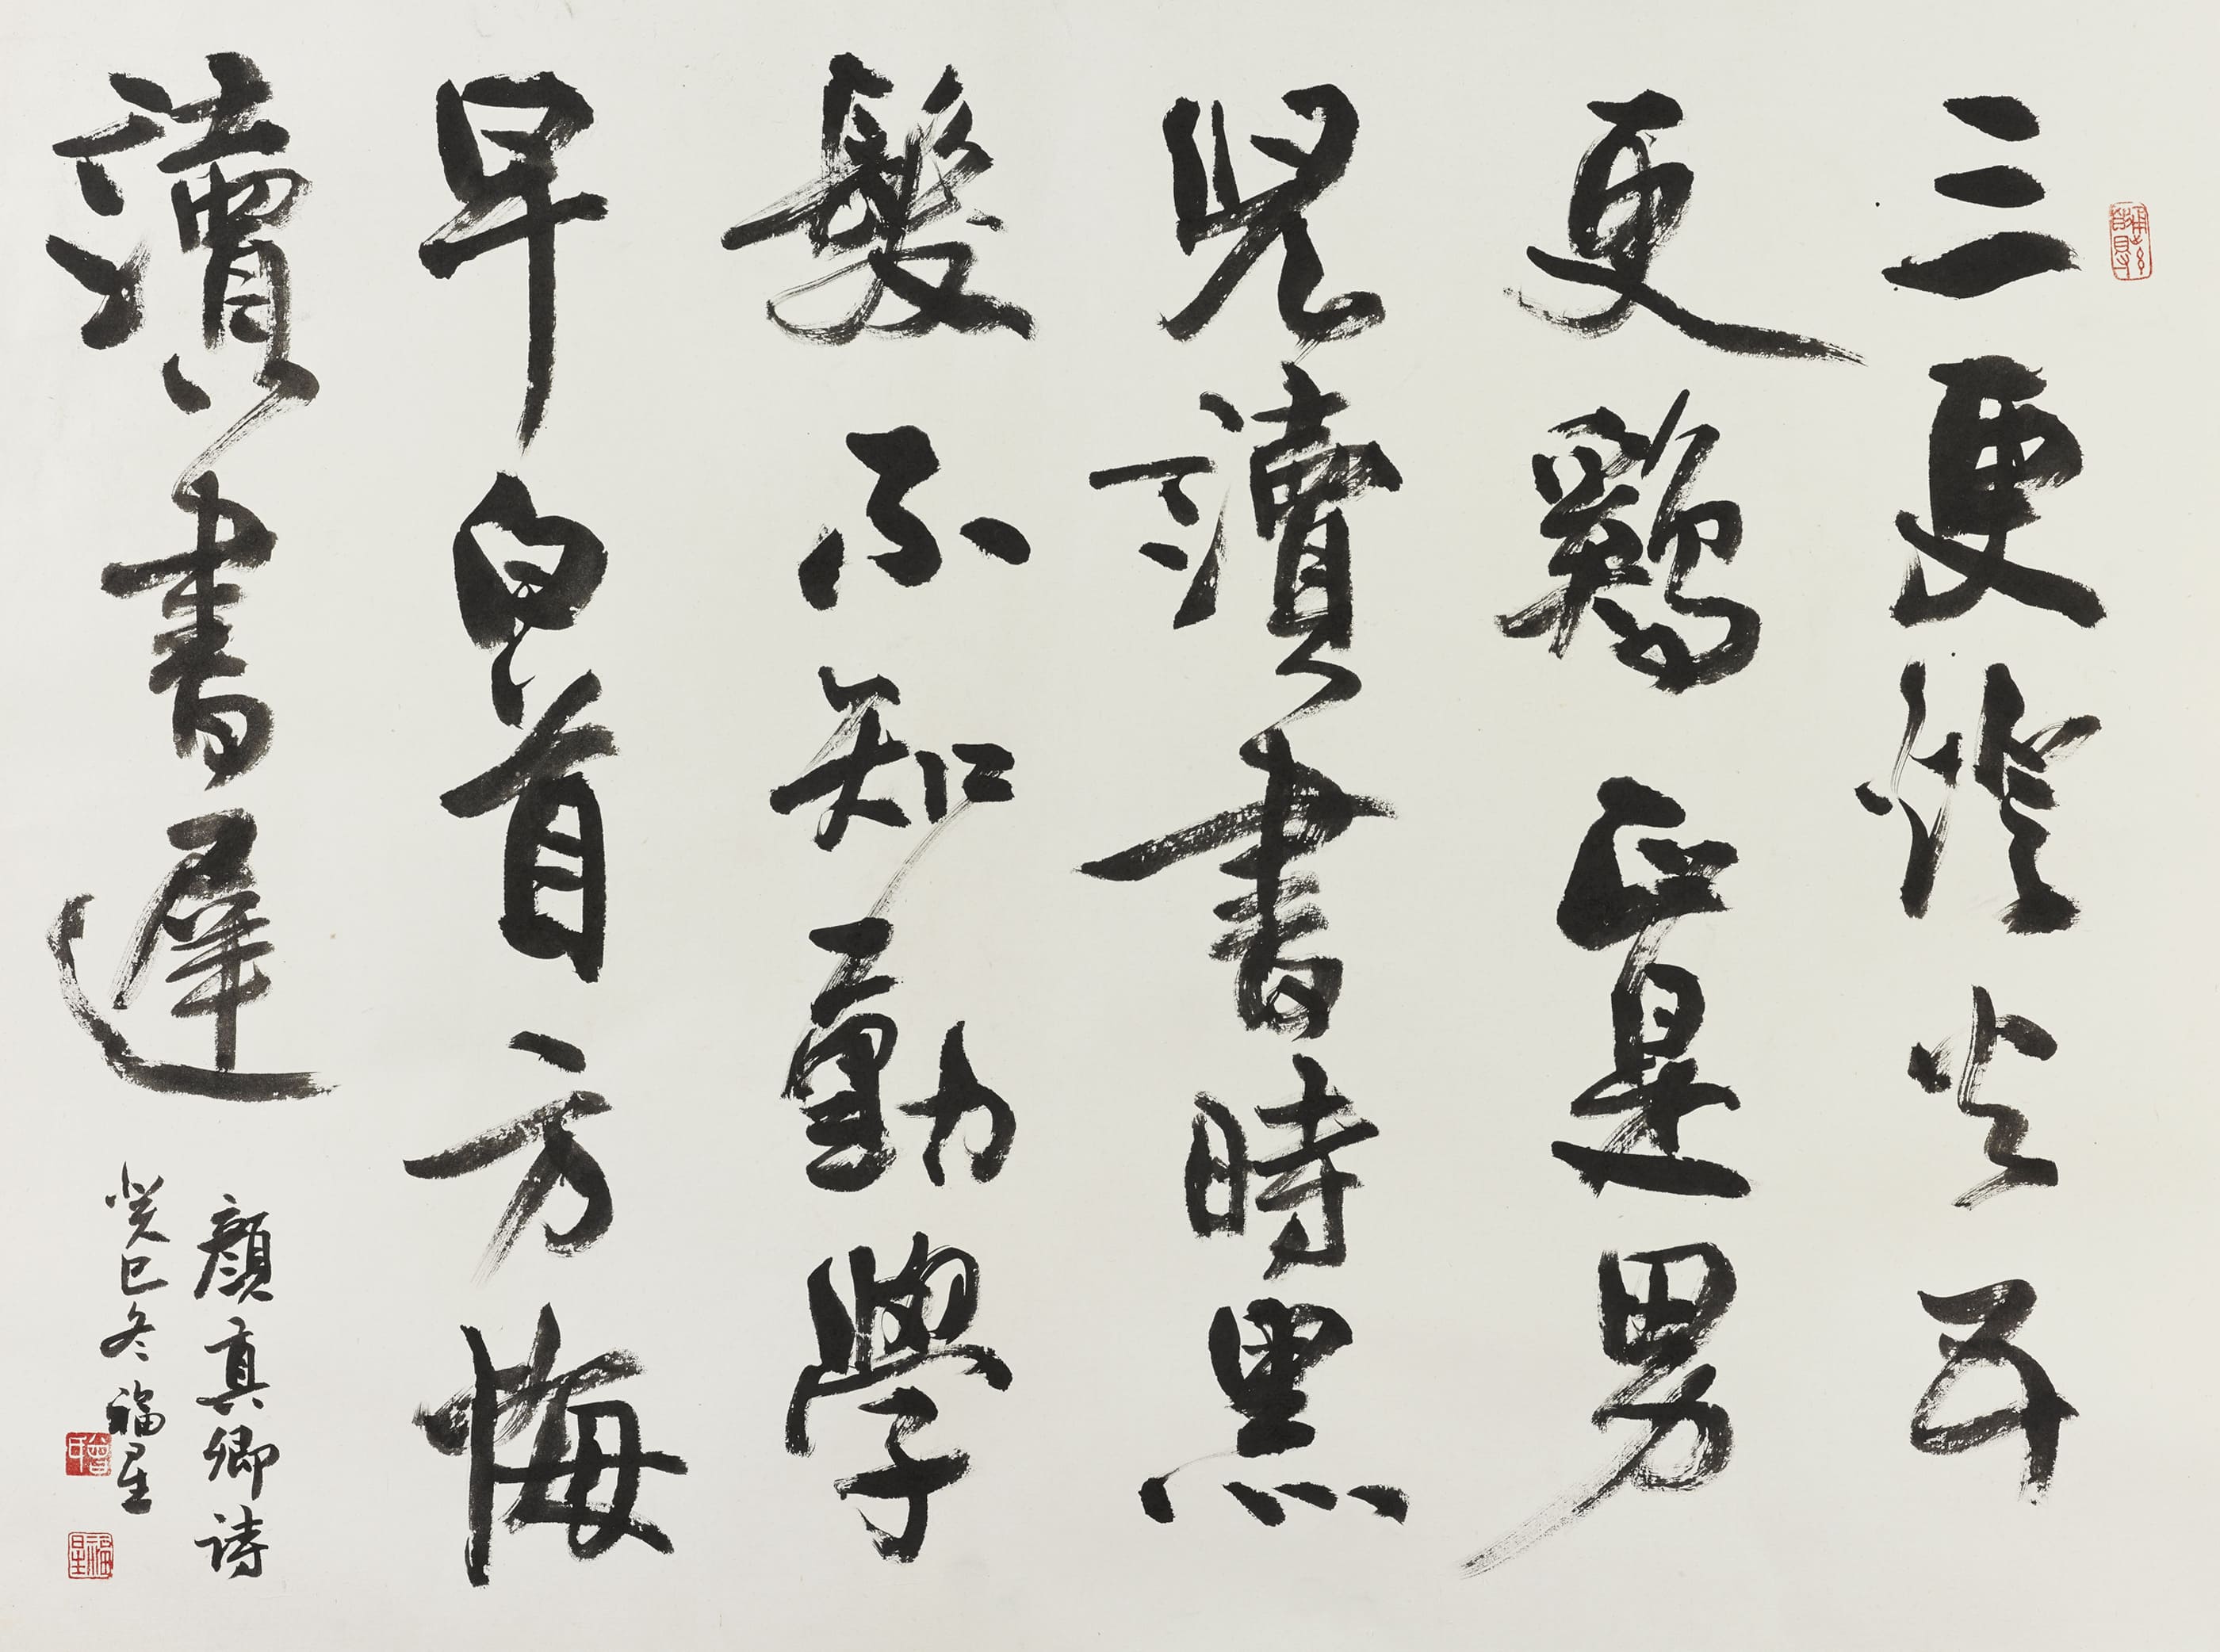 三更燈火五
更鷄正是男
兒讀書時黑
髮不知勤學
早白首方悔
讀書遲
顏真卿詩
癸巳冬福星
福星